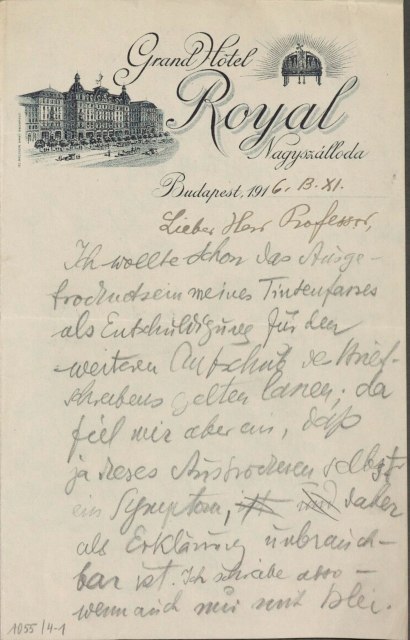 Grand Hôtel
Royal
Nagyszálloda
Budapest, 1916. 13. XI.
Lieber Herr Professor,
Ich wollte schon das Ausge-
trocknetsein meines Tintenfasses
als Entschuldigung für den
weiteren Aufschub des Brief-
schreibens gelten lassen; da
fiel mir aber ein, daß
ja dieses Austrocknen selbst
ein Symptom, und daher
als Erklärung unbrauch-
bar ist. Ich schreibe also –
wenn auch nur mit Blei.
1055/4-1